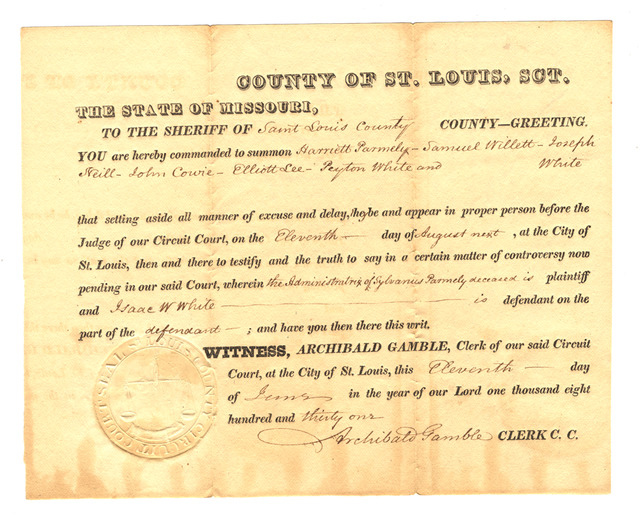 COUNTY OF ST. LOUIS, SCT.
THE STATE OF MISSOURI,
TO THE SHERIFF OF Saint Louis County COUNTY—GREETING.
YOU are hereby commanded to summon Harriett Parmely - Samuel Willett - Joseph
Neill - John Cowie - Elliott Lee - Peyton White and White
that setting aside all manner of excuse and delay, he be and appear in proper person before the
Judge of our Circuit Court, on the Eleventh — day of August next, at the City of
St. Louis, then and there to testify and the truth to say in a certain matter of controversy now
pending in our said Court, wherein the Administratrix of Sylvanus Parmely deceased is plaintiff
and Isaac W White — is defendant on the
part of the defendant — ; and have you then there this writ.
WITNESS, ARCHIBALD GAMBLE, Clerk of our said Circuit
Court, at the City of St. Louis, this Eleventh — day
of June in the year of our Lord one thousand eight
hundred and thirty one
Archibald Gamble CLERK C. C.